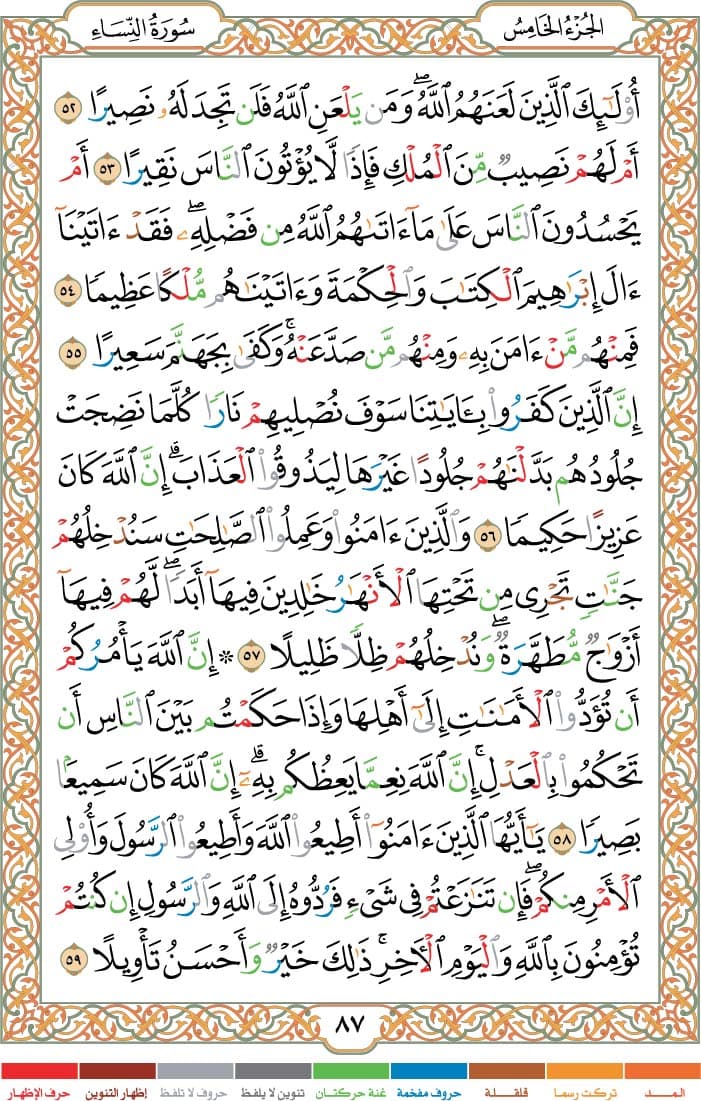 الجزء الخامس
سورة النساء
أُوْلَٰٓئِكَ ٱلَّذِينَ لَعَنَهُمُ ٱللَّهُۖ وَمَن يَلۡعَنِ ٱللَّهُ فَلَن تَجِدَ لَهُۥ نَصِيرًا ٥٢
أَمۡ لَهُمۡ نَصِيبٞ مِّنَ ٱلۡمُلۡكِ فَإِذٗا لَّا يُؤۡتُونَ ٱلنَّاسَ نَقِيرًا ٥٣ أَمۡ
يَحۡسُدُونَ ٱلنَّاسَ عَلَىٰ مَآ ءَاتَىٰهُمُ ٱللَّهُ مِن فَضۡلِهِۦۖ فَقَدۡ ءَاتَيۡنَآ
ءَالَ إِبۡرَٰهِيمَ ٱلۡكِتَٰبَ وَٱلۡحِكۡمَةَ وَءَاتَيۡنَٰهُم مُّلۡكًا عَظِيمٗا ٥٤
فَمِنۡهُم مَّنۡ ءَامَنَ بِهِۦ وَمِنۡهُم مَّن صَدَّ عَنۡهُۚ وَكَفَىٰ بِجَهَنَّمَ سَعِيرًا ٥٥
إِنَّ ٱلَّذِينَ كَفَرُواْ بِـَٔايَٰتِنَا سَوۡفَ نُصۡلِيهِمۡ نَارٗا كُلَّمَا نَضِجَتۡ
جُلُودُهُم بَدَّلۡنَٰهُمۡ جُلُودًا غَيۡرَهَا لِيَذُوقُواْ ٱلۡعَذَابَۗ إِنَّ ٱللَّهَ كَانَ
عَزِيزًا حَكِيمٗا ٥٦ وَٱلَّذِينَ ءَامَنُواْ وَعَمِلُواْ ٱلصَّٰلِحَٰتِ سَنُدۡخِلُهُمۡ
جَنَّٰتٖ تَجۡرِي مِن تَحۡتِهَا ٱلۡأَنۡهَٰرُ خَٰلِدِينَ فِيهَآ أَبَدٗاۖ لَّهُمۡ فِيهَآ
أَزۡوَٰجٞ مُّطَهَّرَةٞۖ وَنُدۡخِلُهُمۡ ظِلّٗا ظَلِيلًا ٥٧ ۞ إِنَّ ٱللَّهَ يَأۡمُرُكُمۡ
أَن تُؤَدُّواْ ٱلۡأَمَٰنَٰتِ إِلَىٰٓ أَهۡلِهَا وَإِذَا حَكَمۡتُم بَيۡنَ ٱلنَّاسِ أَن
تَحۡكُمُواْ بِٱلۡعَدۡلِۚ إِنَّ ٱللَّهَ نِعِمَّا يَعِظُكُم بِهِۦٓۗ إِنَّ ٱللَّهَ كَانَ سَمِيعَۢا
بَصِيرٗا ٥٨ يَٰٓأَيُّهَا ٱلَّذِينَ ءَامَنُوٓاْ أَطِيعُواْ ٱللَّهَ وَأَطِيعُواْ ٱلرَّسُولَ وَأُوْلِي
ٱلۡأَمۡرِ مِنكُمۡۖ فَإِن تَنَٰزَعۡتُمۡ فِي شَيۡءٖ فَرُدُّوهُ إِلَى ٱللَّهِ وَٱلرَّسُولِ إِن كُنتُمۡ
تُؤۡمِنُونَ بِٱللَّهِ وَٱلۡيَوۡمِ ٱلۡأٓخِرِۚ ذَٰلِكَ خَيۡرٞ وَأَحۡسَنُ تَأۡوِيلًا ٥٩
٨٧
المـــد تركت رسما قلقـــلة حروف مفخمة غنة حركتـان تنوين لا يلفظ حروف لا تلفظ إظهار التنوين حرف الإظهار